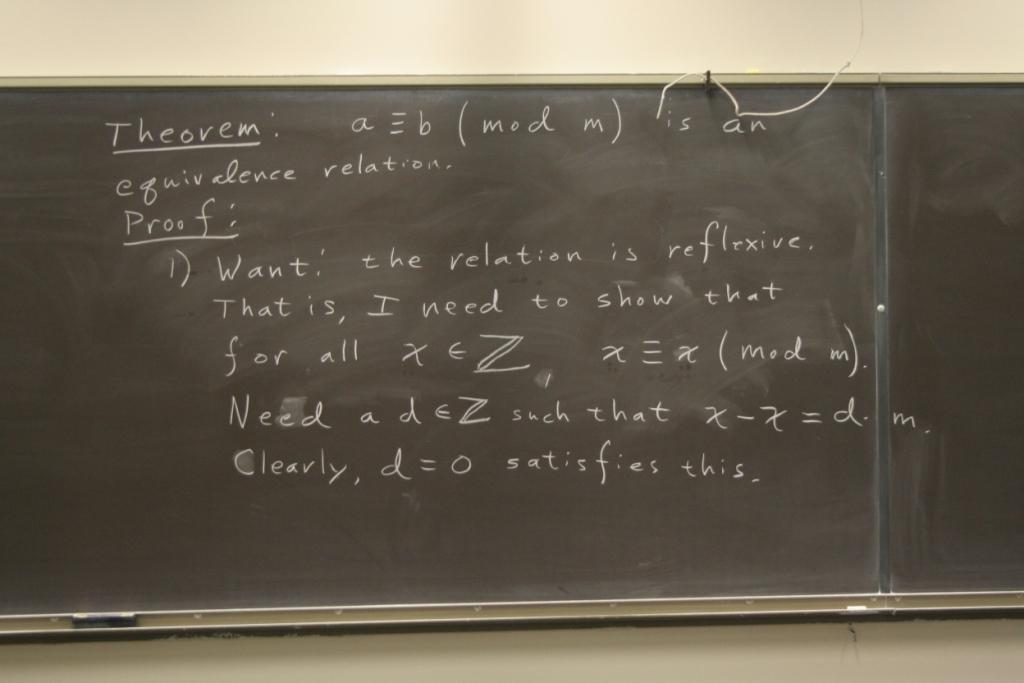 Theorem: a ≡ b (mod m) is an
equivalence relation.
Proof:
1) Want: the relation is reflexive.
That is, I need to show that
for all x ∈ ℤ, x ≡ x (mod m).
Need a d ∈ ℤ such that x - x = d · m.
Clearly, d = 0 satisfies this.